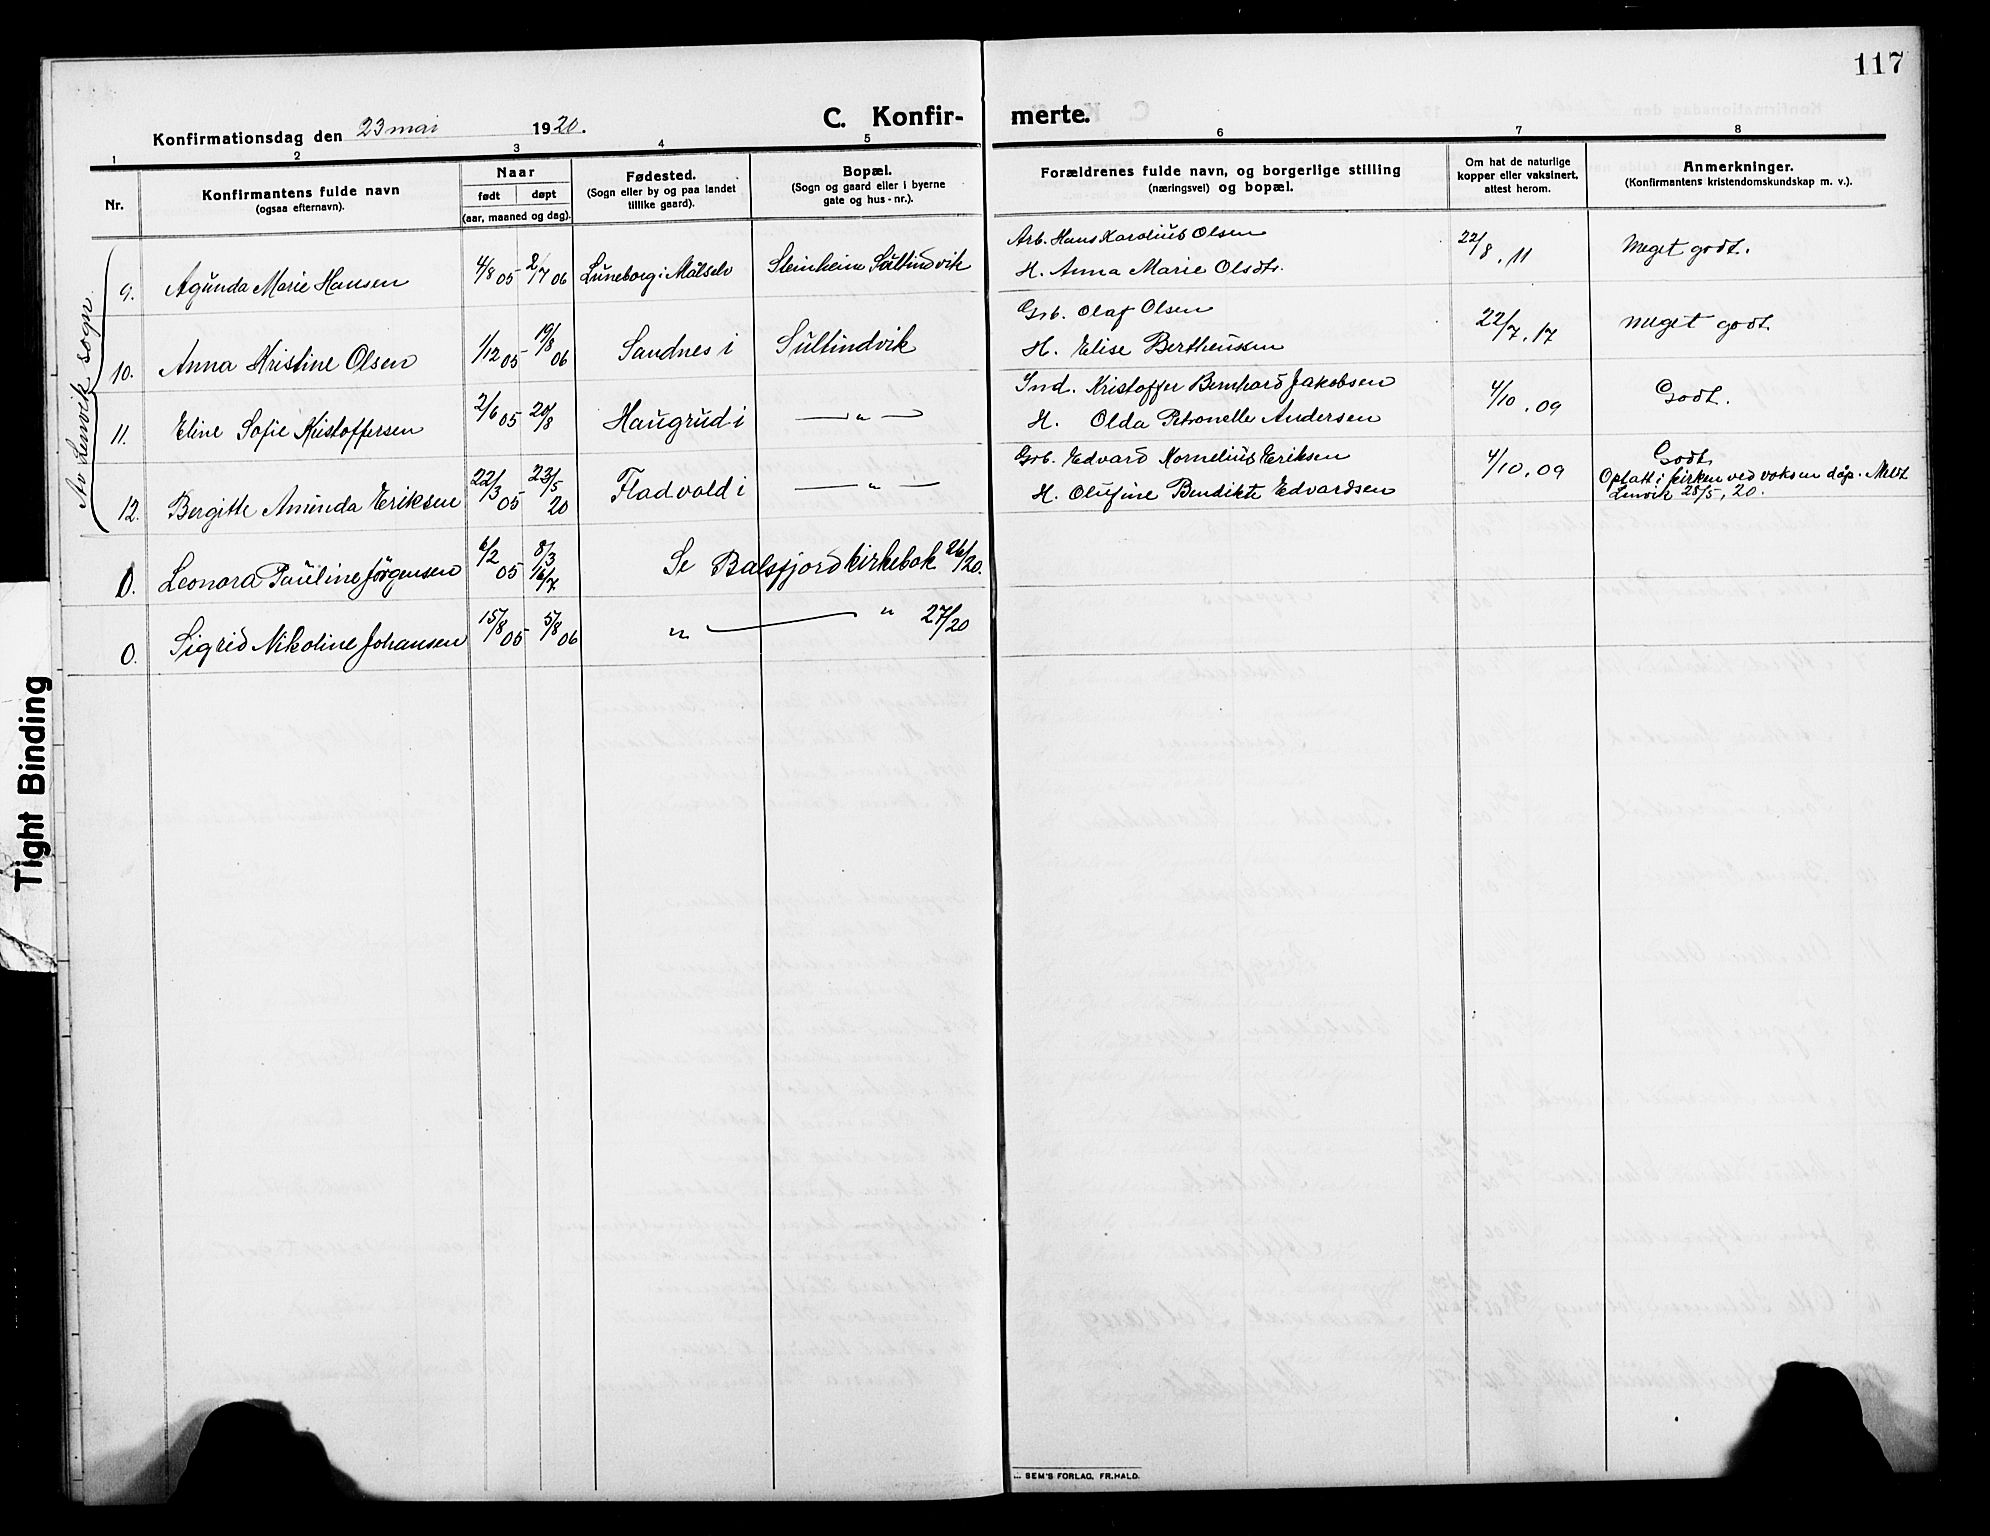 117
Konfirmationsdag den 23 mai 1920.
C. Konfir-merte.
1 2 3 4 5 6 7 8
Nr.
Konfirmantens fulde navn
(ogsaa efternavn).
Naar
født døpt
(aar, maaned og dag).
Fødested.
(Sogn eller by og paa landet
tillike gaard).
Bopæl.
(Sogn og gaard eller i byerne
gate og hus-nr.).
Forældrenes fulde navn, og borgerlige stilling
(næringsvei) og bopæl.
Om hat de naturlige
kopper eller vaksinert,
attest herom.
Anmerkninger.
(Konfirmantens kristendomskundskap m. v.).
Av Lenvik sogn
Arb. Hans Karolius Olsen
9. Agunda Marie Hansen 4/8 05 2/7 06 Luneborg i Målselv Steinheim Sultindvik H. Anna Marie Olsdtr. 22/8.11 Meget godt.
Grb. Olaf Olsen
10. Anna Kristine Olsen 1/12 05 19/8 06 Sandnes i Sultindvik H. Elise Bertheussen 22/7.17 Meget godt.
Ind. Kristoffer Bernhard Jakobsen
11. Eline Sofie Kristoffersen 2/6 05 20/8 Haugrud i — " — H. Olda Petronelle Andersen 4/10.09 Godt.
Grb. Edvard Kornelius Eriksen
12. Bergitte Aminda Eriksen 22/3 05 23/5 20 Fladvold i — " — H. Olufine Bendikte Edvardsen 4/10.09 Godt.
Optatt i kirken ved voksen dåp. Meldt
Lenvik 28/5, 20.
0. Leonora Pauline Jørgensen 6/2 05 8/3 16/7 Se Balsfjord kirkebok 26/20.
0. Sigrid Nikoline Johansen 15/8 05 5/8 06 " — " 27/20
Tight Binding
SEM'S FORLAG, FR.HALD.